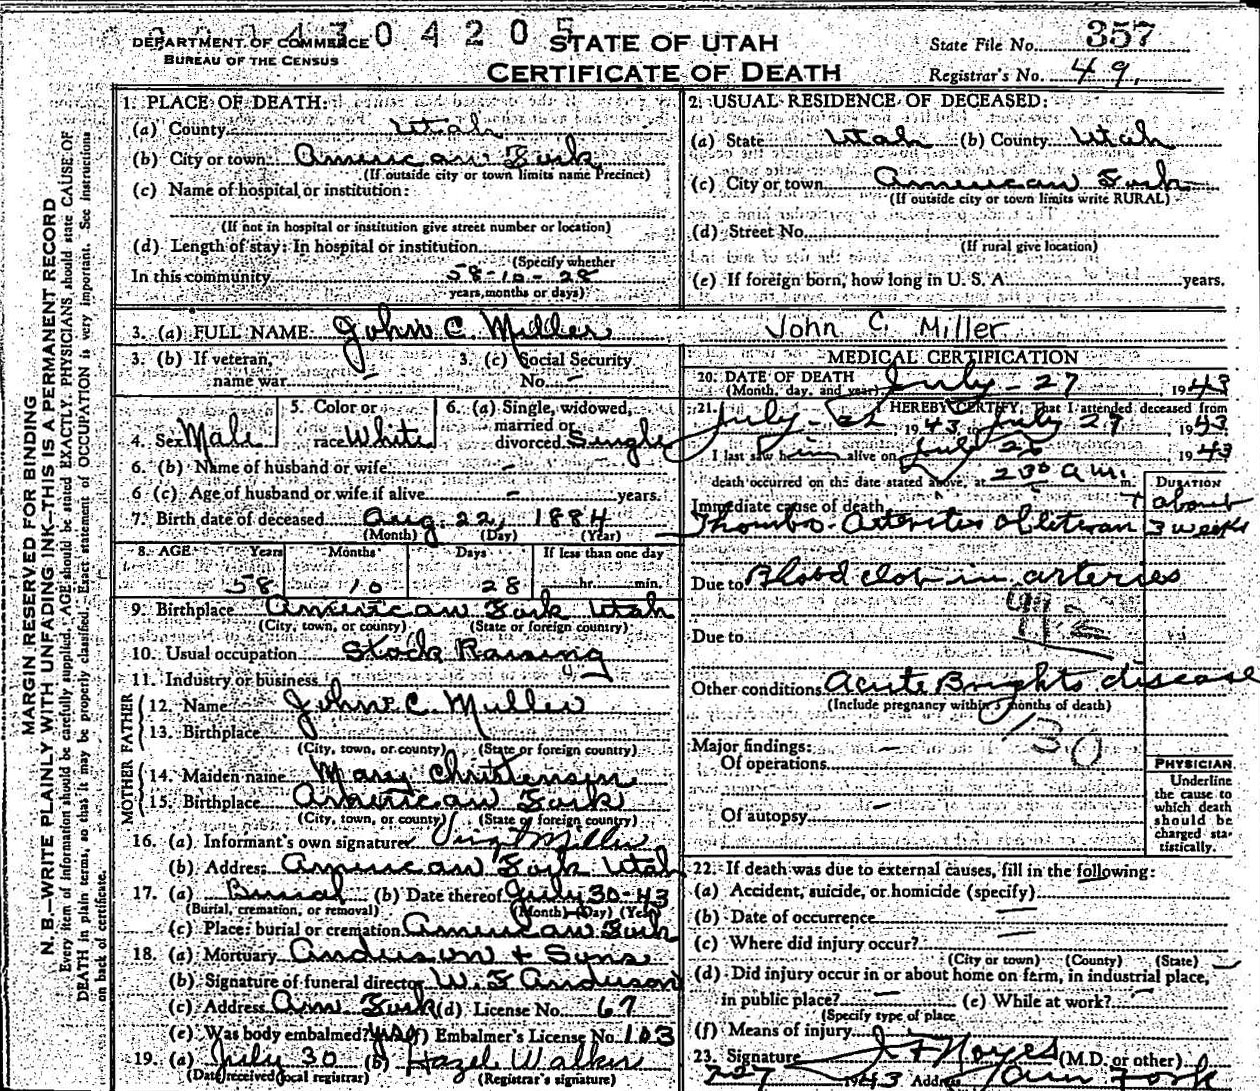 004304205
DEPARTMENT OF COMMERCE
BUREAU OF THE CENSUS
STATE OF UTAH
CERTIFICATE OF DEATH
State File No. 357
Registrar's No. 49
MARGIN RESERVED FOR BINDING
N. B.—WRITE PLAINLY WITH UNFADING INK—THIS IS A PERMANENT RECORD
Every item of information should be carefully supplied. AGE should be stated EXACTLY. PHYSICIANS should state CAUSE OF
DEATH in plain terms, so that it may be properly classified. Exact statement of OCCUPATION is very important. See instructions
on back of certificate.
1. PLACE OF DEATH:
(a) County Utah
(b) City or town American Fork
(If outside city or town limits name Precinct)
(c) Name of hospital or institution:
(If not in hospital or institution give street number or location)
(d) Length of stay: In hospital or institution
(Specify whether
In this community 58-10-28
years, months or days)
2. USUAL RESIDENCE OF DECEASED:
(a) State Utah (b) County Utah
(c) City or town American Fork
(If outside city or town limits write RURAL)
(d) Street No.
(If rural give location)
(e) If foreign born, how long in U. S. A. years.
3. (a) FULL NAME John C. Miller John C Miller
3. (b) If veteran, name war –
3. (c) Social Security No. –
4. Sex Male
5. Color or race White
6. (a) Single, widowed, married or divorced Single
6. (b) Name of husband or wife –
6 (c) Age of husband or wife if alive – years.
7. Birth date of deceased Aug. 22, 1884
(Month) (Day) (Year)
8. AGE Years Months Days If less than one day
58 10 28 hr. min.
9. Birthplace American Fork Utah
(City, town, or county) (State or foreign country)
10. Usual occupation Stock Raising
11. Industry or business
FATHER
12. Name John C. Miller
13. Birthplace
(City, town, or county) (State or foreign country)
MOTHER
14. Maiden name Mary Christensen
15. Birthplace American Fork
(City, town, or county) (State or foreign country)
16. (a) Informant's own signature Miller
(b) Address American Fork Utah
17. (a) Burial (b) Date thereof July 30-43
(Burial, cremation, or removal) (Month) (Day) (Year)
(c) Place: burial or cremation American Fork
18. (a) Mortuary Anderson & Sons
(b) Signature of funeral director W. F. Anderson
(c) Address Am Fork (d) License No. 67
(e) Was body embalmed? yes (f) Embalmer's License No. 103
19. (a) July 30 (b) Hazel Walker
(Date received local registrar) (Registrar's signature)
MEDICAL CERTIFICATION
20. DATE OF DEATH
(Month, day, and year) July-27, 1943
21. I HEREBY CERTIFY, That I attended deceased from
July 1943 to July 27, 1943
I last saw him alive on July 26, 1943
death occurred on the date stated above, at 2 30 a.m. m.
DURATION
Immediate cause of death
Thrombo-Arteritis obliteran
about
3 weeks
Due to Blood clot in arteries
Due to
Other conditions Acute Brights disease
(Include pregnancy within 3 months of death)
130
Major findings:
Of operations –
Of autopsy –
PHYSICIAN
Underline
the cause to
which death
should be
charged sta-
tistically.
22. If death was due to external causes, fill in the following:
(a) Accident, suicide, or homicide (specify)
(b) Date of occurrence
(c) Where did injury occur?
(City or town) (County) (State)
(d) Did injury occur in or about home on farm, in industrial place,
in public place? – (e) While at work? –
(Specify type of place
(f) Means of injury
23. Signature Noyes (M.D. or other)
7-27 1943 Address Am Fork